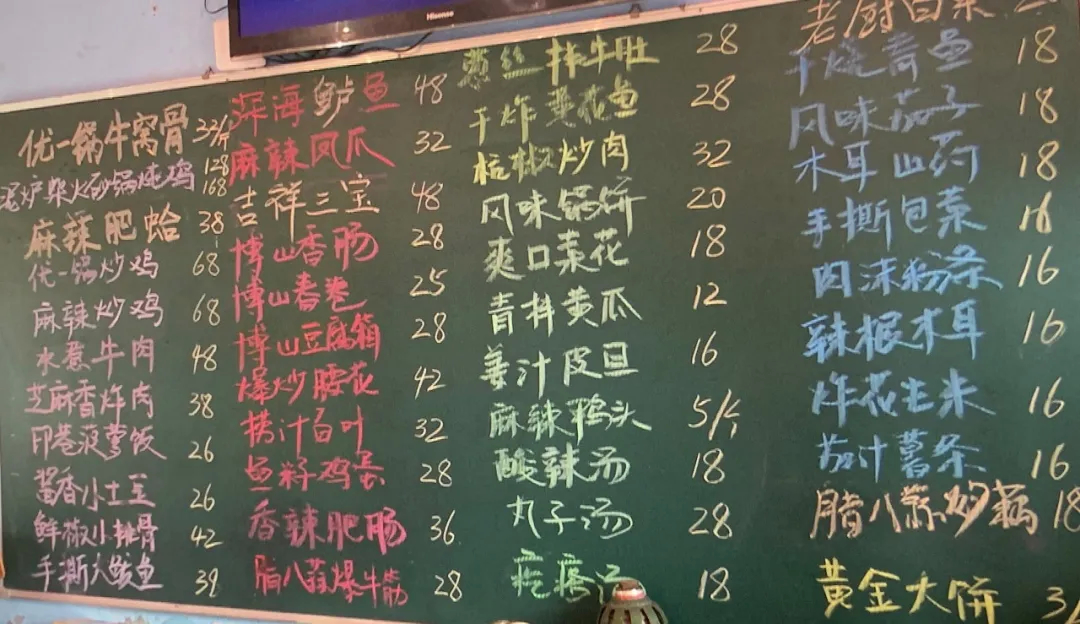 Hisense
优一锅牛窝骨 32/斤
泥炉柴火砂锅炖鸡 128 168
麻辣肥蛤 38
优一锅炒鸡 68
麻辣炒鸡 68
水煮牛肉 48
芝麻香炸肉 38
印巷菠萝饭 26
酱香小土豆 26
鲜椒小排骨 42
手撕大鱿鱼 38
深海鲈鱼 48
麻辣凤爪 32
吉祥三宝 48
博山香肠 28
博山春卷 25
博山豆腐箱 28
爆炒腰花 42
捞汁百叶 32
鱼籽鸡蛋 28
香辣肥肠 36
腊八蒜爆牛筋 28
葱丝拌牛肚 28
干炸黄花鱼 28
杭椒炒肉 32
风味锅饼 20
爽口菜花 18
青拌黄瓜 12
姜汁皮旦 16
麻辣鸭头 5/个
酸辣汤 18
丸子汤 28
疙瘩汤 18
老厨白菜
干烧青鱼 18
风味茄子 18
木耳山药 18
手撕包菜 16
肉沫粉条 16
辣根木耳 16
炸花生米 16
茄汁薯条 16
腊八蒜炒藕 18
黄金大饼